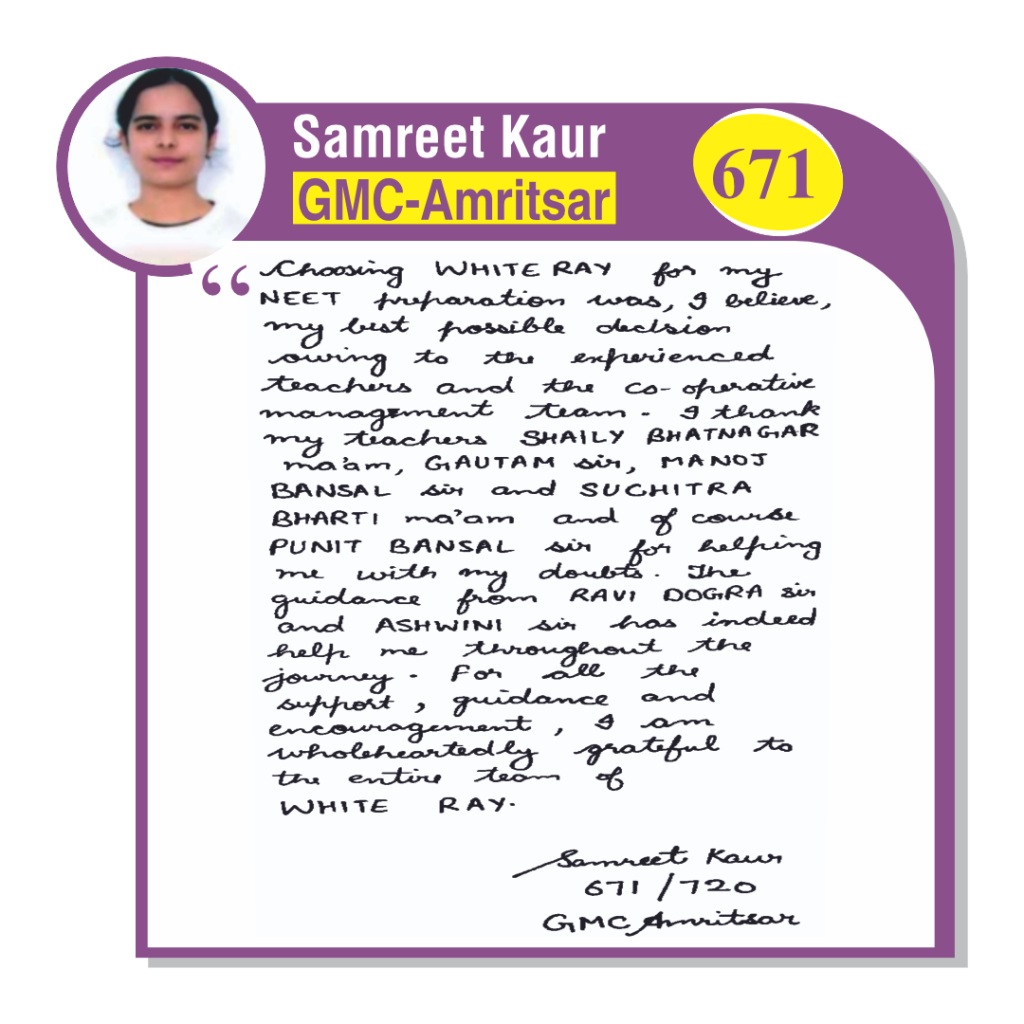 Samreet Kaur
GMC-Amritsar
671
“ Choosing WHITE RAY for my
NEET preparation was, I believe,
my best possible decision
owing to the experienced
teachers and the co-operative
management team. I thank
my teachers SHAILY BHATNAGAR
ma'am, GAUTAM sir, MANOJ
BANSAL sir and SUCHITRA
BHARTI ma'am and of course
PUNIT BANSAL sir for helping
me with my doubts. The
guidance from RAVI DOGRA sir
and ASHWINI sir has indeed
help me throughout the
journey. For all the
support, guidance and
encouragement, I am
wholeheartedly grateful to
the entire team of
WHITE RAY.
Samreet Kaur
671/720
GMC Amritsar